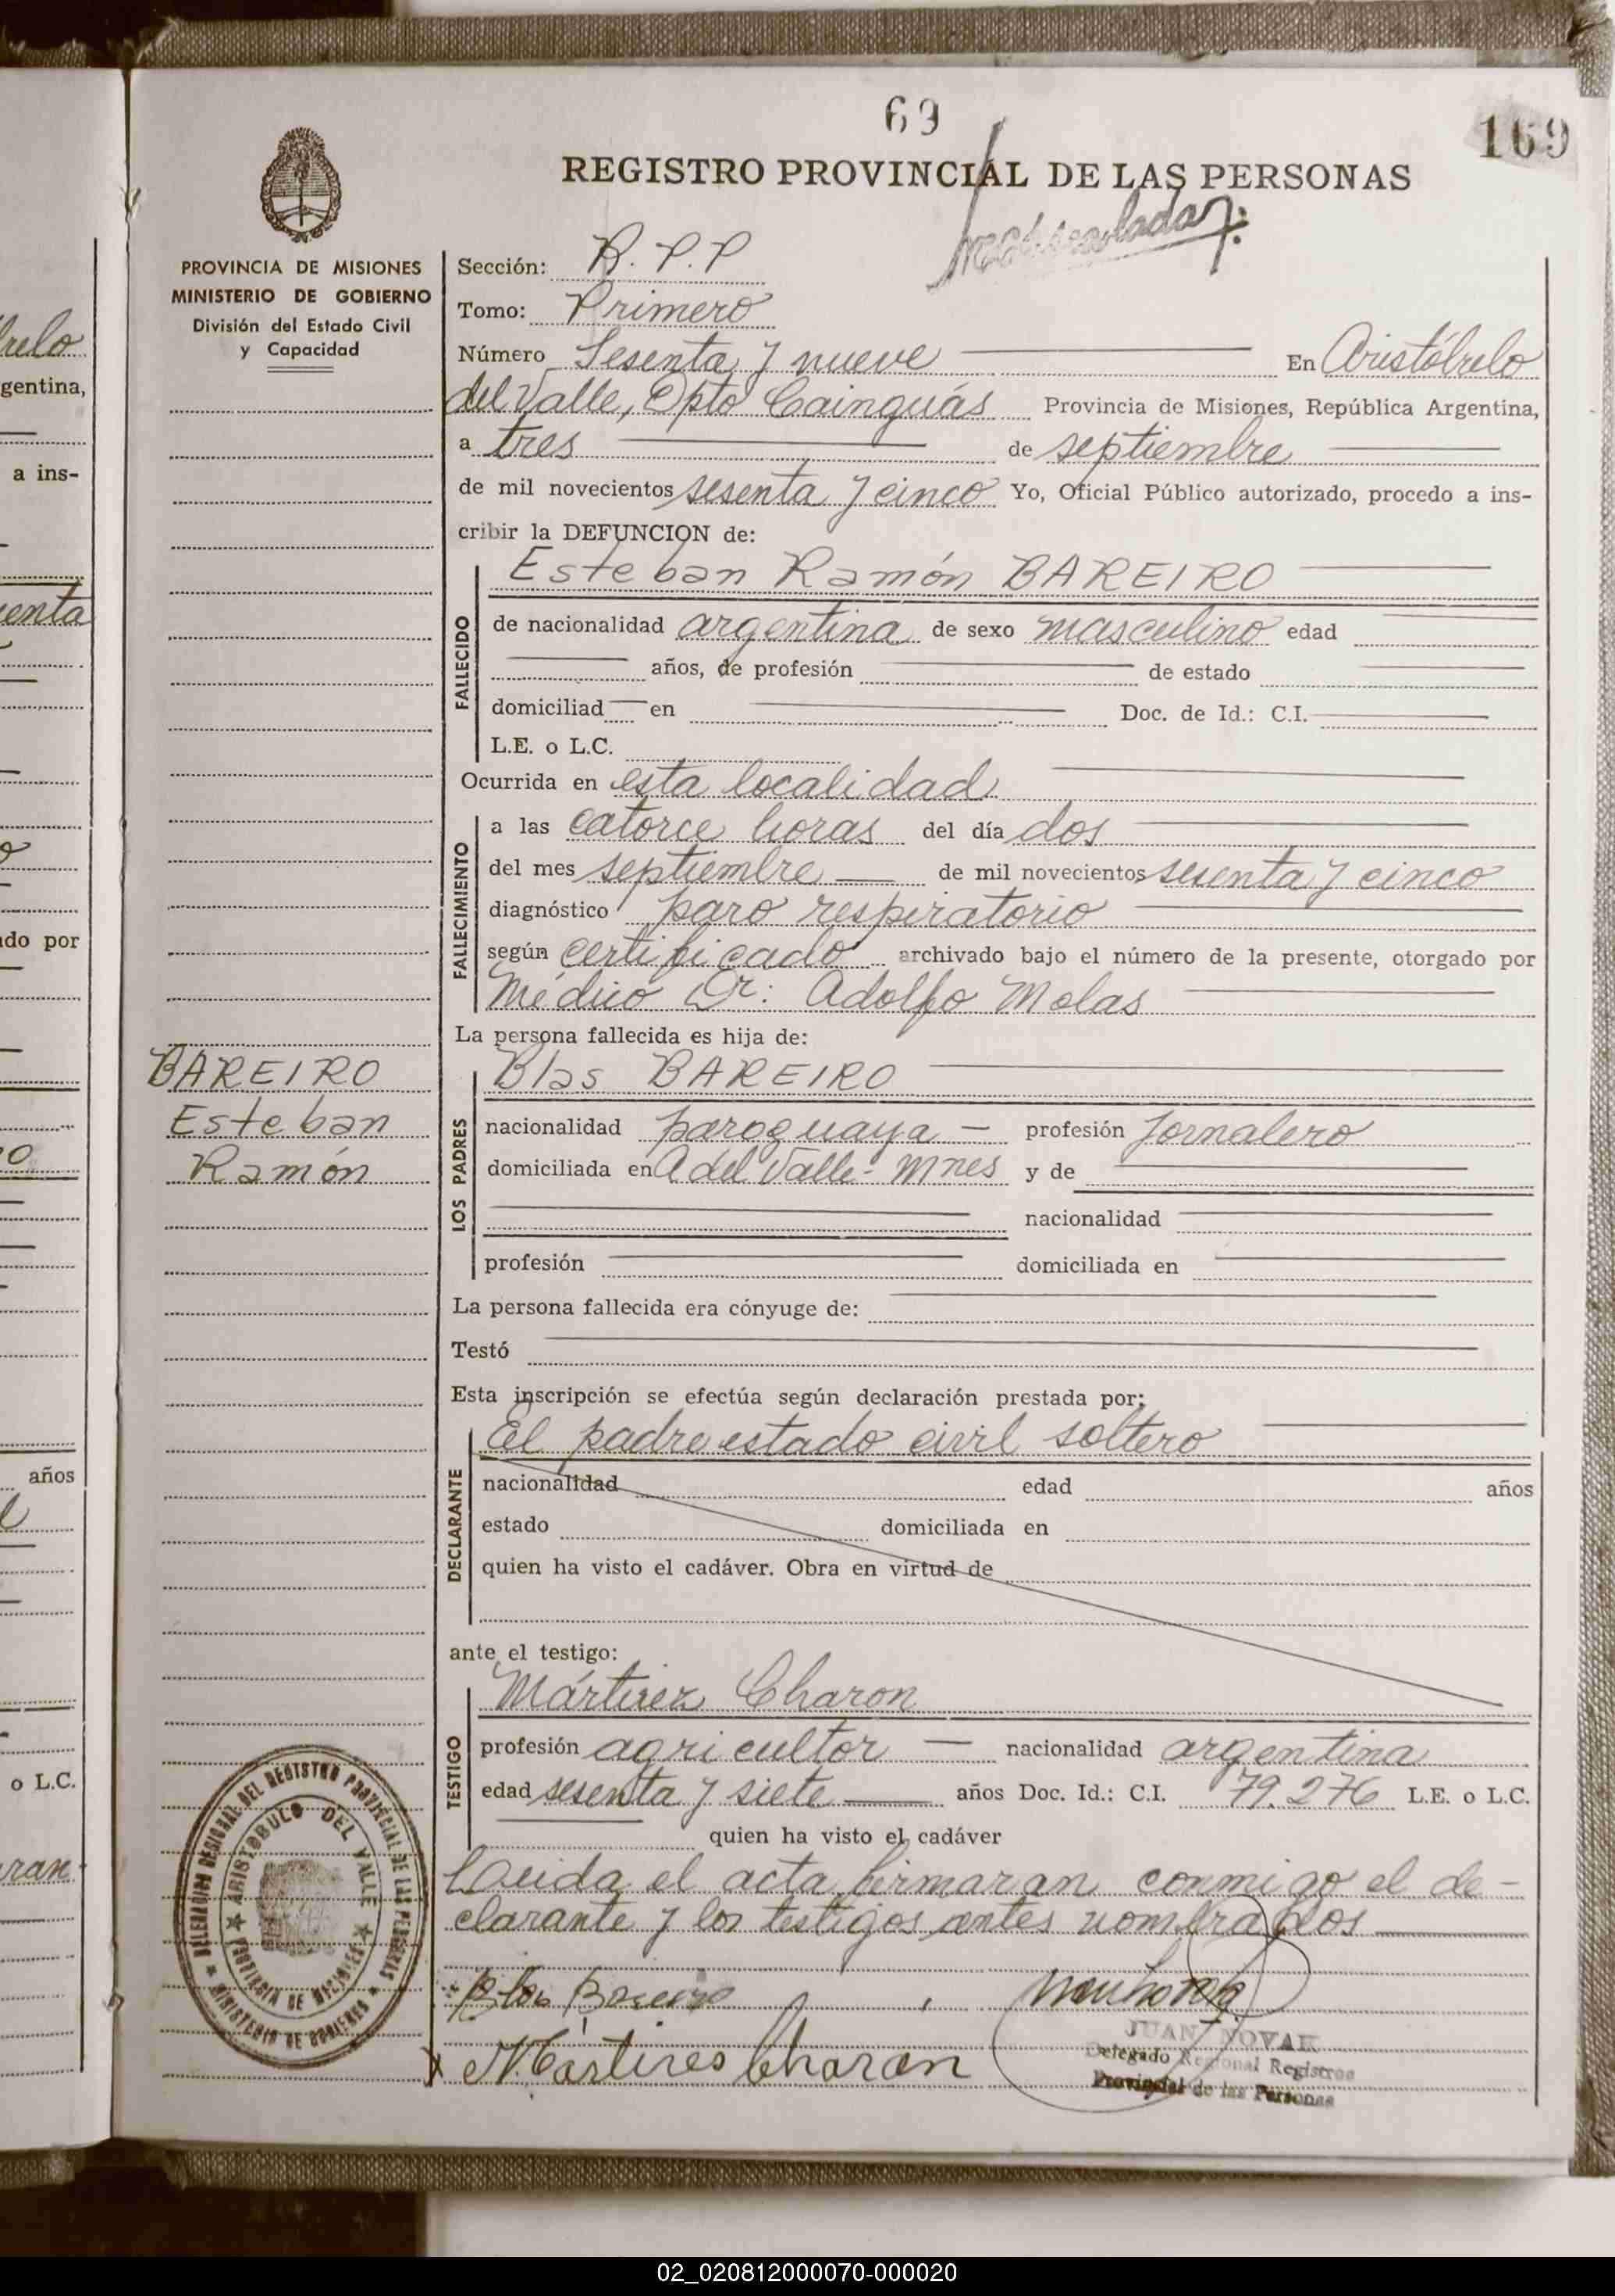 69
169
REGISTRO PROVINCIAL DE LAS PERSONAS
PROVINCIA DE MISIONES
MINISTERIO DE GOBIERNO
División del Estado Civil
y Capacidad
Sección: R. P. P
Tomo: Primero
Número Sesenta y nueve En Aristóbulo
del Valle, Dpto Cainguás Provincia de Misiones, República Argentina,
a tres de septiembre
de mil novecientos sesenta y cinco Yo, Oficial Público autorizado, procedo a ins-
cribir la DEFUNCION de:
Esteban Ramón BAREIRO
FALLECIDO
de nacionalidad argentina de sexo masculino edad
años, de profesión de estado
domiciliad en Doc. de Id.: C.I.
L.E. o L.C.
Ocurrida en esta localidad
FALLECIMIENTO
a las catorce horas del día dos
del mes septiembre de mil novecientos sesenta y cinco
diagnóstico paro respiratorio
según certificado archivado bajo el número de la presente, otorgado por
Médico Dr: Adolfo Molas
La persona fallecida es hija de:
BAREIRO
Esteban
Ramón
LOS PADRES
Blas BAREIRO
nacionalidad paraguaya - profesión Jornalero
domiciliada en A del Valle - Mnes y de
nacionalidad
profesión domiciliada en
La persona fallecida era cónyuge de:
Testó
Esta inscripción se efectúa según declaración prestada por:
DECLARANTE
El padre estado civil soltero
nacionalidad edad años
estado domiciliada en
quien ha visto el cadáver. Obra en virtud de
ante el testigo:
TESTIGO
Mártirez Charon
profesión agricultor - nacionalidad argentina
edad sesenta y siete años Doc. Id.: C.I. 79.276 L.E. o L.C.
quien ha visto el cadáver
Leida el acta, firmaran conmigo el de-
clarante y los testigos antes nombrados
Blas Bareiro
Martires Charan
JUAN NOVAK
Delegado Regional Registros
Provincial de las Personas
DELEGACION REGIONAL DEL REGISTRO PROVINCIAL DE LAS PERSONAS
★ MINISTERIO DE GOBIERNO ★
★ ARISTOBULO DEL VALLE ★
PROVINCIA DE MISIONES
relo
gentina,
a ins-
enta
do por
años
o L.C.
ran
02_020812000070-000020